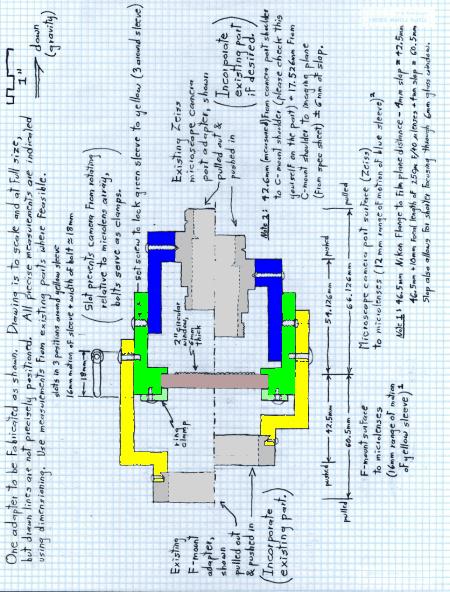 One adapter to be fabricated as shown. Drawing is to scale and at full size,
but drawn lines are not precisely positioned. All precise measurements are indicated
using dimensioning. Use measurements from existing parts where feasible.
1"
down
(gravity)
slots in 3 positions around yellow sleeve
16mm motion of sleeve + width of bolt ≅ 18mm
18mm
(Slot prevents camera from rotating
relative to microlens array,
bolts serve as clamps.)
set screw to lock green sleeve to yellow (3 around sleeve)
Existing Zeiss
microscope camera
port adapter, shown
pulled out &
pushed in
(Incorporate
existing part
if desired.)
2" circular
window,
6mm
thick
ring
clamp
Existing
F-mount
adapter,
shown
pulled out
& pushed in
(Incorporate
existing part.)
pushed
42.5mm
pushed
54.126mm
pulled
60.5mm
66.126mm
pulled
F-mount surface
to microlenses
(16mm range of motion
of yellow sleeve)¹
Microscope camera port surface (Zeiss)
to microlenses (12mm range of motion of blue sleeve)²
Note 2: 42.6mm (measured) from camera port shoulder
to C-mount shoulder (please check this
yourself on the part) + 17.526mm from
C-mount shoulder to imaging plane
(from spec sheet) ± 6mm of slop.
Note 1: 46.5mm Nikon flange to film plane distance - 4mm slop = 42.5mm
Slop also allows for shorter focusing through 6mm glass window.